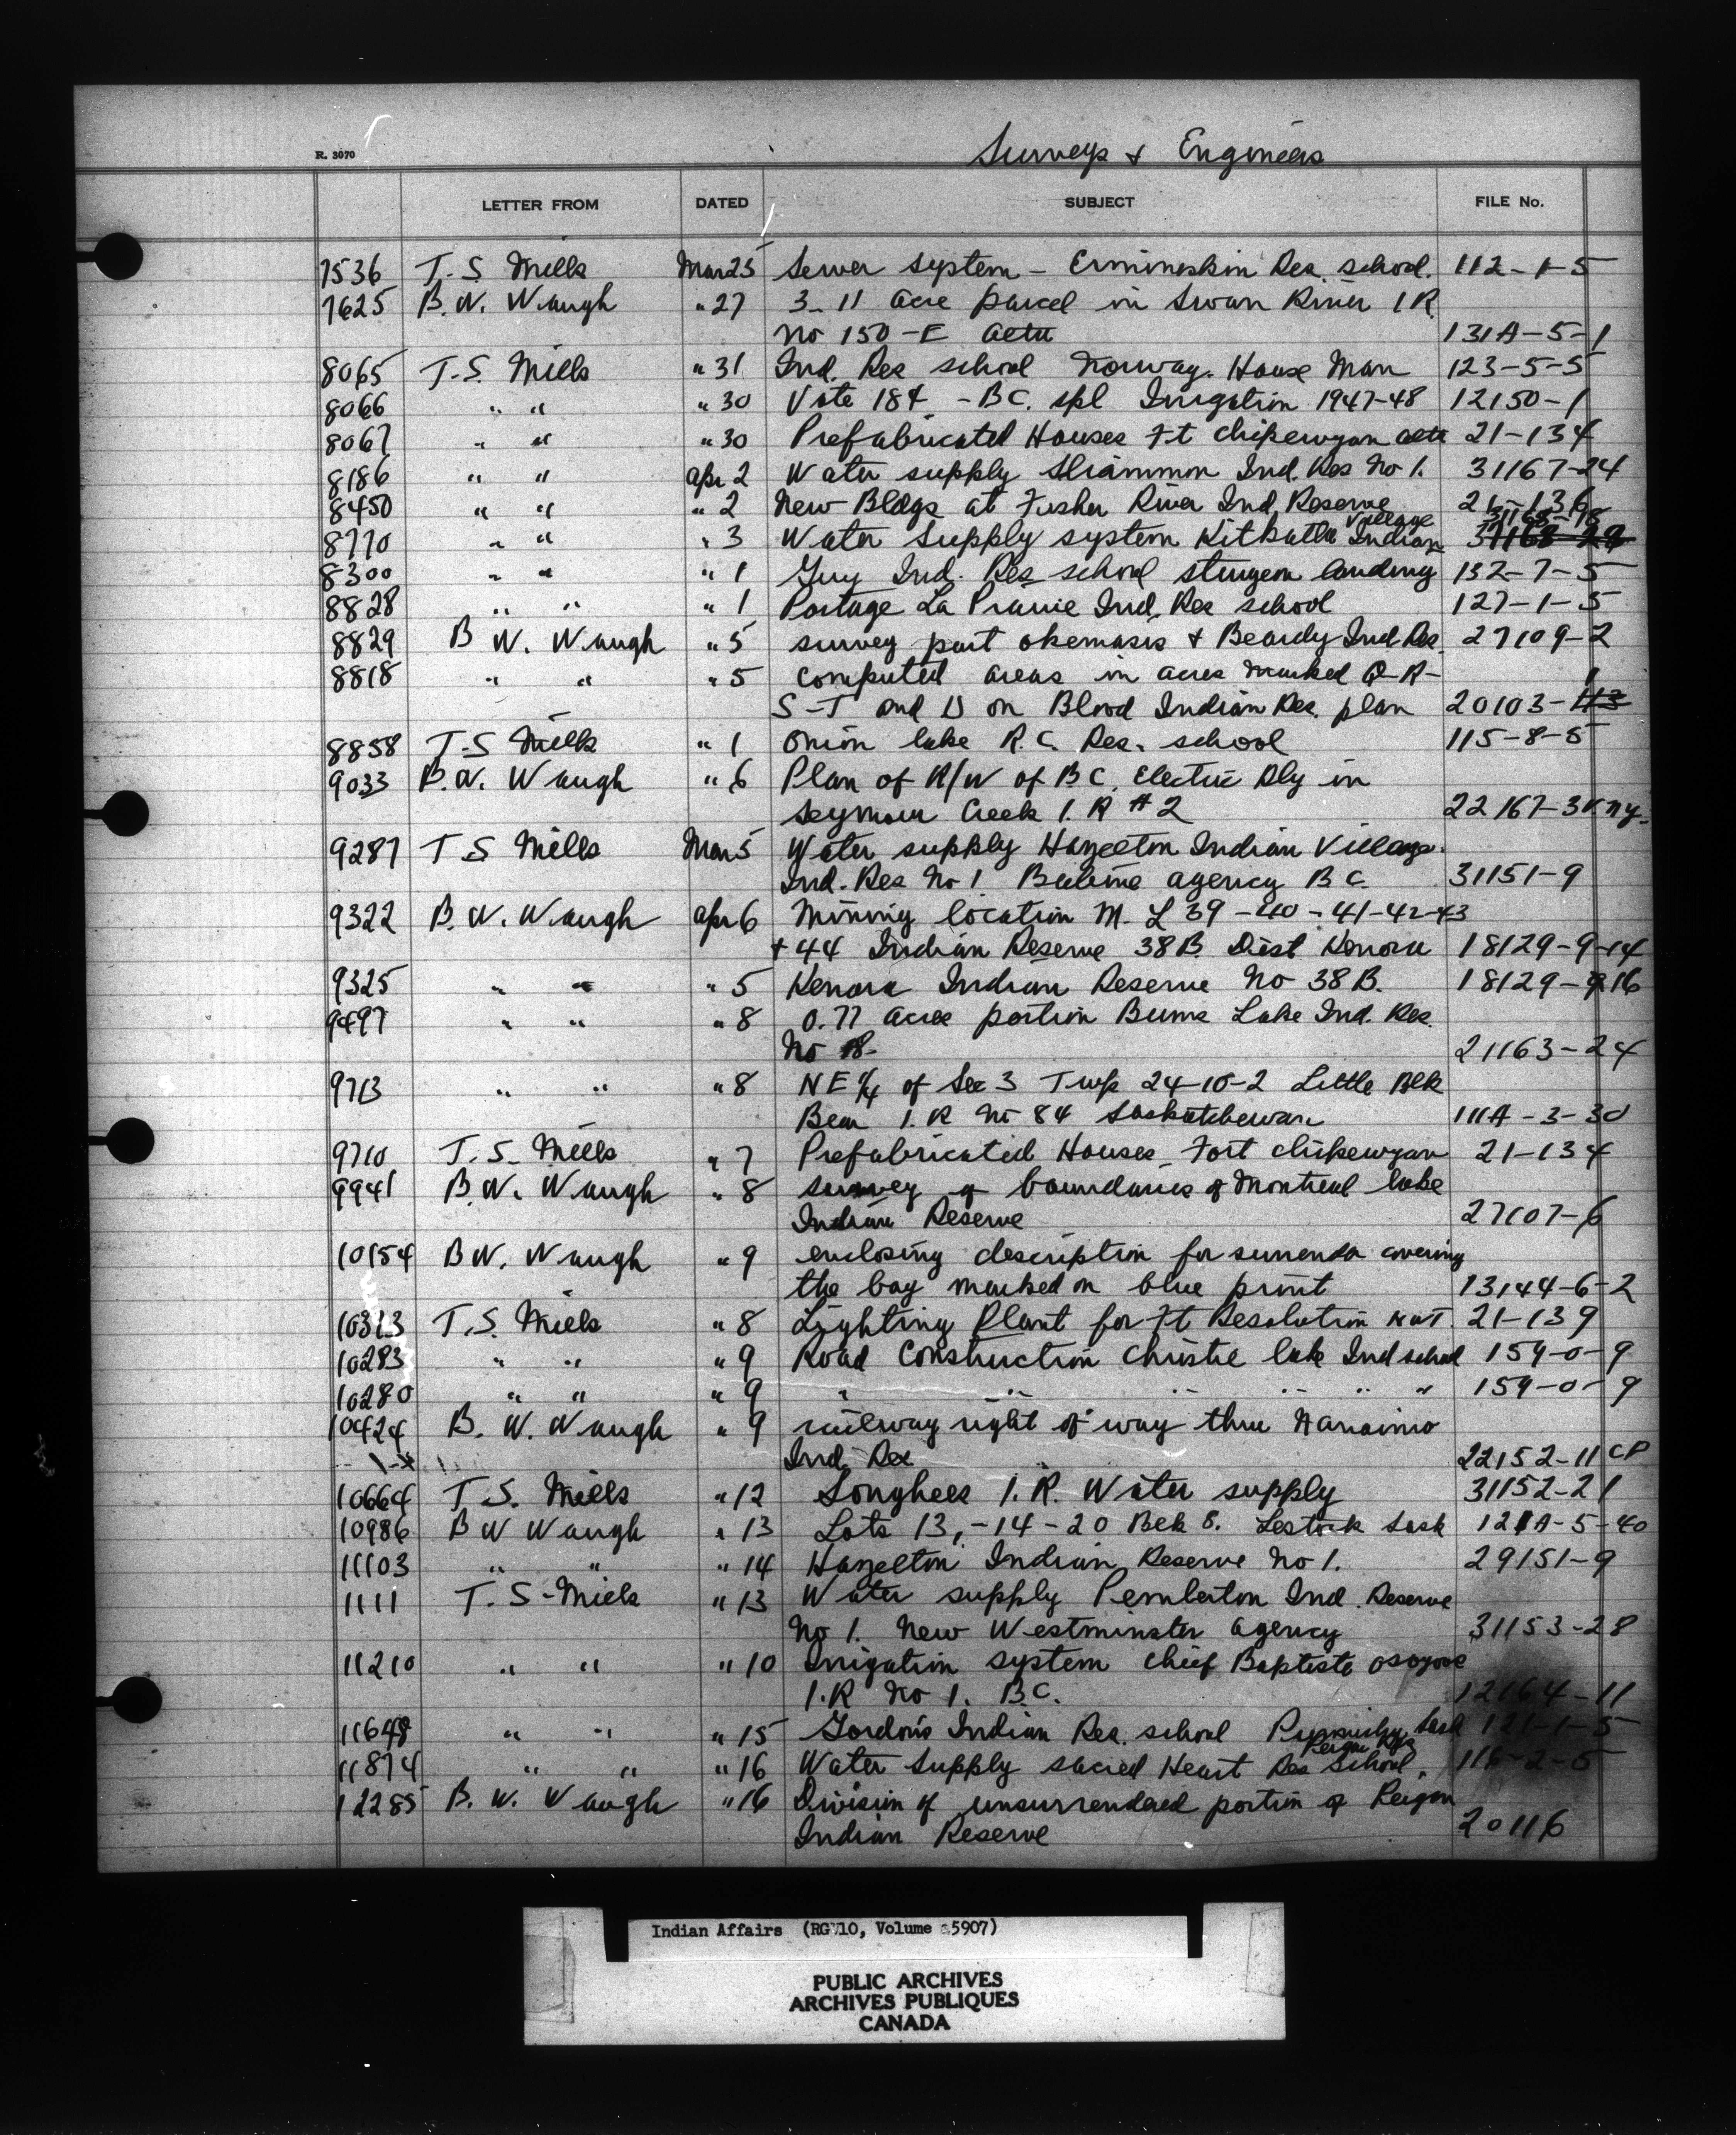 R. 3070
Surveys & Engineers
LETTER FROM DATED SUBJECT FILE No.
7536 T. S. Mills Mar 25 Sewer system - Ermineskin Res. school. 112-1-5
7625 B. W. Waugh " 27 3.11 acre parcel in Swan River I R
No 150-E alta 131A-5-1
8065 T. S. Mills " 31 Ind. Res school Norway House Man 123-5-5
8066 " " " 30 Vote 184 - BC. spl Irrigation 1947-48 12150-1
8067 " " " 30 Prefabricated Houses Ft Chipewyan alta 21-134
8186 " " Apr 2 Water supply Sliammon Ind. Res No 1. 31167-24
8450 " " " 2 New Bldgs at Fisher River Ind. Reserve 21-136
8770 " " " 3 Water supply system Kitkatla Indian Village 31168-18
8300 " " " 1 Guy Ind. Res school sturgeon landing 132-7-5
8828 " " " 1 Portage La Prairie Ind. Res school 127-1-5
8829 B W. Waugh " 5 survey part okemasis & Beardy Ind Res. 27109-2
8818 " " " 5 computed areas in acres marked Q-R-
S-T and U on Blood Indian Res. plan 20103-1
8858 T-S Mills " 1 Onion lake R.C. Res. school 115-8-5
9033 B.W. Waugh " 6 Plan of R/W of B C. Electric Rly in
Seymour Creek I. R # 2 22167-3
9287 T S Mills Mar 5 Water supply Hazelton Indian Village.
Ind. Res No 1. Babine agency B C. 31151-9
9322 B. W. Waugh Apr 6 Mining location M. L 39-40-41-42-43
+ 44 Indian Reserve 38B. Dist Kenora 18129-9-14
9325 " " " 5 Kenora Indian Reserve No 38 B. 18129-9-16
9497 " " " 8 0.77 acre portion Burns Lake Ind. Res.
No 18- 21163-24
9713 " " " 8 NE 1/4 of Sec 3 Twp 24-10-2 Little Blk
Bear I. R No 84 Saskatchewan 111A-3-30
9710 T. S. Mills " 7 Prefabricated Houses - Fort chipewyan 21-134
9941 B. W. Waugh " 8 survey of boundaries of Montreal lake
Indian Reserve 27107-6
10154 B W. Waugh " 9 enclosing description for surrender covering
the bay marked on blue print 13144-6-2
10313 T. S. Mills " 8 Lighting Plant for Ft Resolution NWT. 21-139
10283 " " " 9 Road Construction Christie lake Ind school 159-0-9
10280 " " " 9 " " " " " " 159-0-9
10424 B. W. Waugh " 9 railway right of way thru Nanaimo
Ind. Res 22152-11 CP
10664 T S. Mills " 12 Songhees I. R. Water supply 31152-21
10986 B W Waugh " 13 Lots 13,-14-20 Blk 8. Lestock Sask 121A-5-40
11103 " " " 14 Hazelton Indian Reserve No 1. 29151-9
1111 T. S. Mills " 13 Water supply Pemberton Ind. Reserve
No 1. New Westminster agency 31153-28
11210 " " " 10 Irrigation system chief Baptiste Osoyoos
I.R No 1. B.C. 12164-11
11648 " " " 15 Gordons Indian Res. school Punnichy Sask 121-1-5
11874 " " " 16 Water Supply sacred Heart Res School. 116-2-5
12285 B. W. Waugh " 16 Division of unsurrendered portion of Peigan
Indian Reserve 20116
Indian Affairs (RG 10, Volume 5907)
PUBLIC ARCHIVES
ARCHIVES PUBLIQUES
CANADA